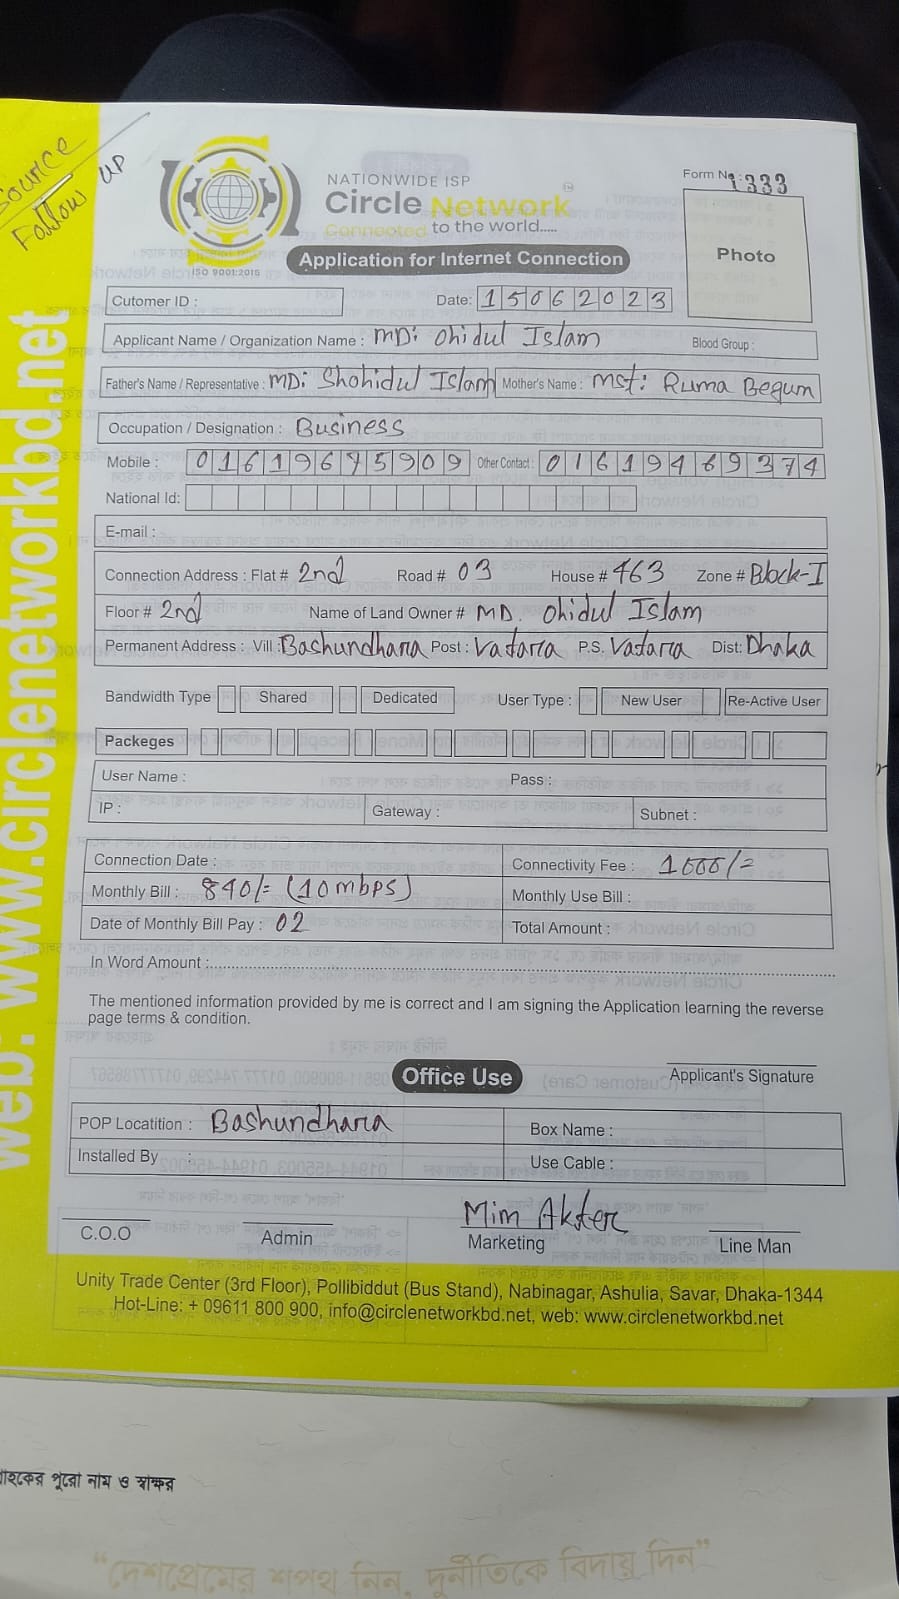 Source
Follow up
NATIONWIDE ISP
Circle Network
Connected to the world.....
ISO 9001:2015
Form No : 1333
Photo
Application for Internet Connection
Cutomer ID :
Date: 15062023
Applicant Name / Organization Name : MD: Ohidul Islam
Blood Group :
Father's Name / Representative : MD: Shohidul Islam Mother's Name : Mst: Ruma Begum
Occupation / Designation : Business
Mobile : 01619675909 Other Contact : 01619469374
National Id:
E-mail :
Connection Address : Flat # 2nd Road # 03 House # 463 Zone # Block-I
Floor # 2nd Name of Land Owner # MD. Ohidul Islam
Permanent Address : Vill : Bashundhara Post : Vatara P.S. Vatara Dist: Dhaka
Bandwidth Type Shared Dedicated User Type : New User Re-Active User
Packeges
User Name : Pass :
IP : Gateway : Subnet :
Connection Date : Connectivity Fee : 1000/=
Monthly Bill : 840/= (10mbps) Monthly Use Bill :
Date of Monthly Bill Pay : 02 Total Amount :
In Word Amount :
The mentioned information provided by me is correct and I am signing the Application learning the reverse
page terms & condition.
Office Use
Applicant's Signature
POP Locatition : Bashundhara Box Name :
Installed By : Use Cable :
Mim Akter
C.O.O Admin Marketing Line Man
Unity Trade Center (3rd Floor), Pollibiddut (Bus Stand), Nabinagar, Ashulia, Savar, Dhaka-1344
Hot-Line: + 09611 800 900, info@circlenetworkbd.net, web: www.circlenetworkbd.net
web: www.circlenetworkbd.net
গ্রাহকের পুরো নাম ও স্বাক্ষর
“দেশপ্রেমের শপথ নিন, দুর্নীতিকে বিদায় দিন”